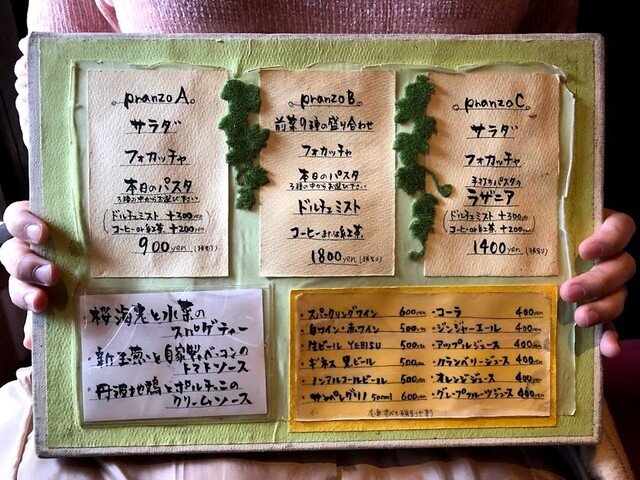 pranzo A
サラダ
フォカッチャ
本日のパスタ
3種の中からお選び下さい
(ドルチェミスト +300yen
コーヒーor紅茶 +200yen)
900yen(税込)
pranzo B
前菜9種の盛り合わせ
フォカッチャ
本日のパスタ
3種の中からお選び下さい
ドルチェミスト
コーヒーまたは紅茶
1800yen(税込)
pranzo C
サラダ
フォカッチャ
手打ちパスタの
ラザニア
(ドルチェミスト +300yen
コーヒーor紅茶 +200yen)
1400yen(税込)
・桜海老と水菜の
スパゲティー
・新玉葱と自家製ベーコンの
トマトソース
・丹波地鶏とポルチーニの
クリームソース
・スパークリングワイン 600yen
・白ワイン・赤ワイン 500yen
・生ビール YEBISU 500yen
・ギネス 黒ビール 500yen
・ノンアルコールビール 500yen
・サンペレグリノ 500ml 600yen
・コーラ 400yen
・ジンジャーエール 400yen
・アップルジュース 400yen
・クランベリージュース 400yen
・オレンジジュース 400yen
・グレープフルーツジュース 400yen